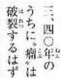 三、四〇年の
うちに〝瘤〟は
破裂するはず